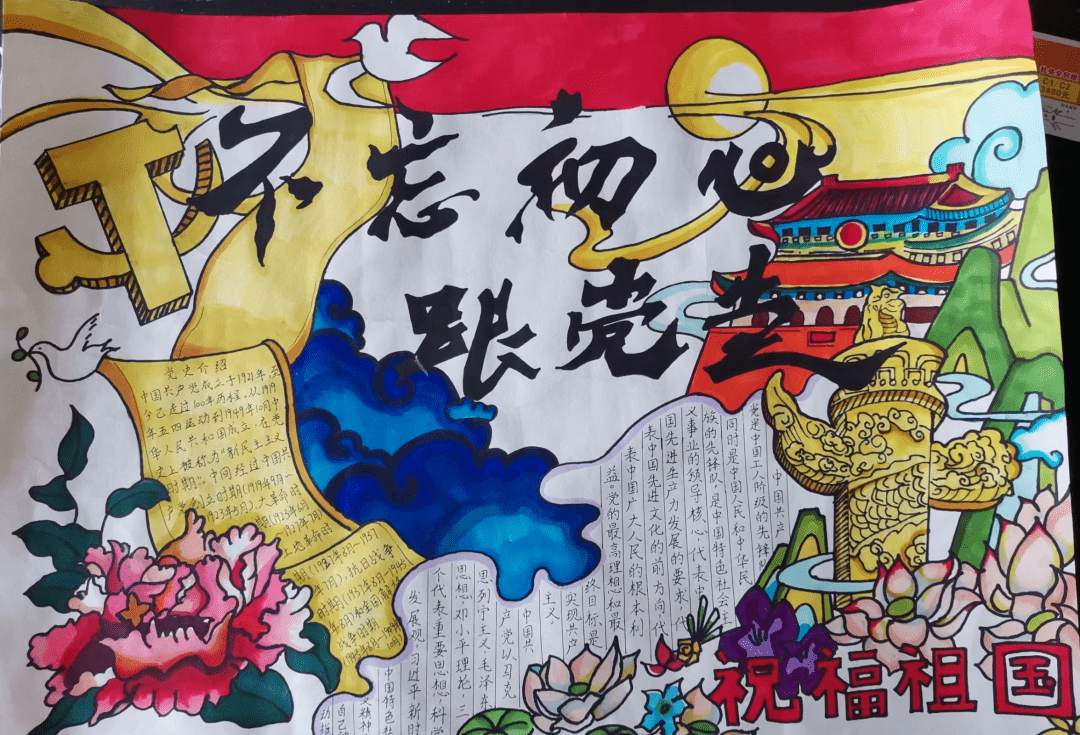 不忘初心
跟党走
党史介绍
中国共产党成立于1921年,至
今已走过100年历程。从1919
年五四运动到1949年10月中
华人民共和国成立,在党
史上被称为"新民主主义
时期"。中间经过中国共
创立时期(1919年9月-
23年6月)大革命的
(1923年6月
1927年7月)
土地革命时
期(1927年8月-1937
年7月),抗日战争
中国共产
党是中国工人阶级的先锋队
同时是中国人民和中华民
族的先锋队,是中国特色社会主
义事业的领导核心,代表中
国先进生产力发展的要求,代
表中国先进文化的前方向,代
表中国广大人民的根本利
益。党的最高理想和最
终目标是
实现共产
主义。
中国共
产党以马克
思列宁主义、毛泽东
思想、邓小平理论、三
个代表重要思想,科学
发展观、习近平新时
中国特色社
义精神
自己
动指
祝福祖国
C1/C2
3680元